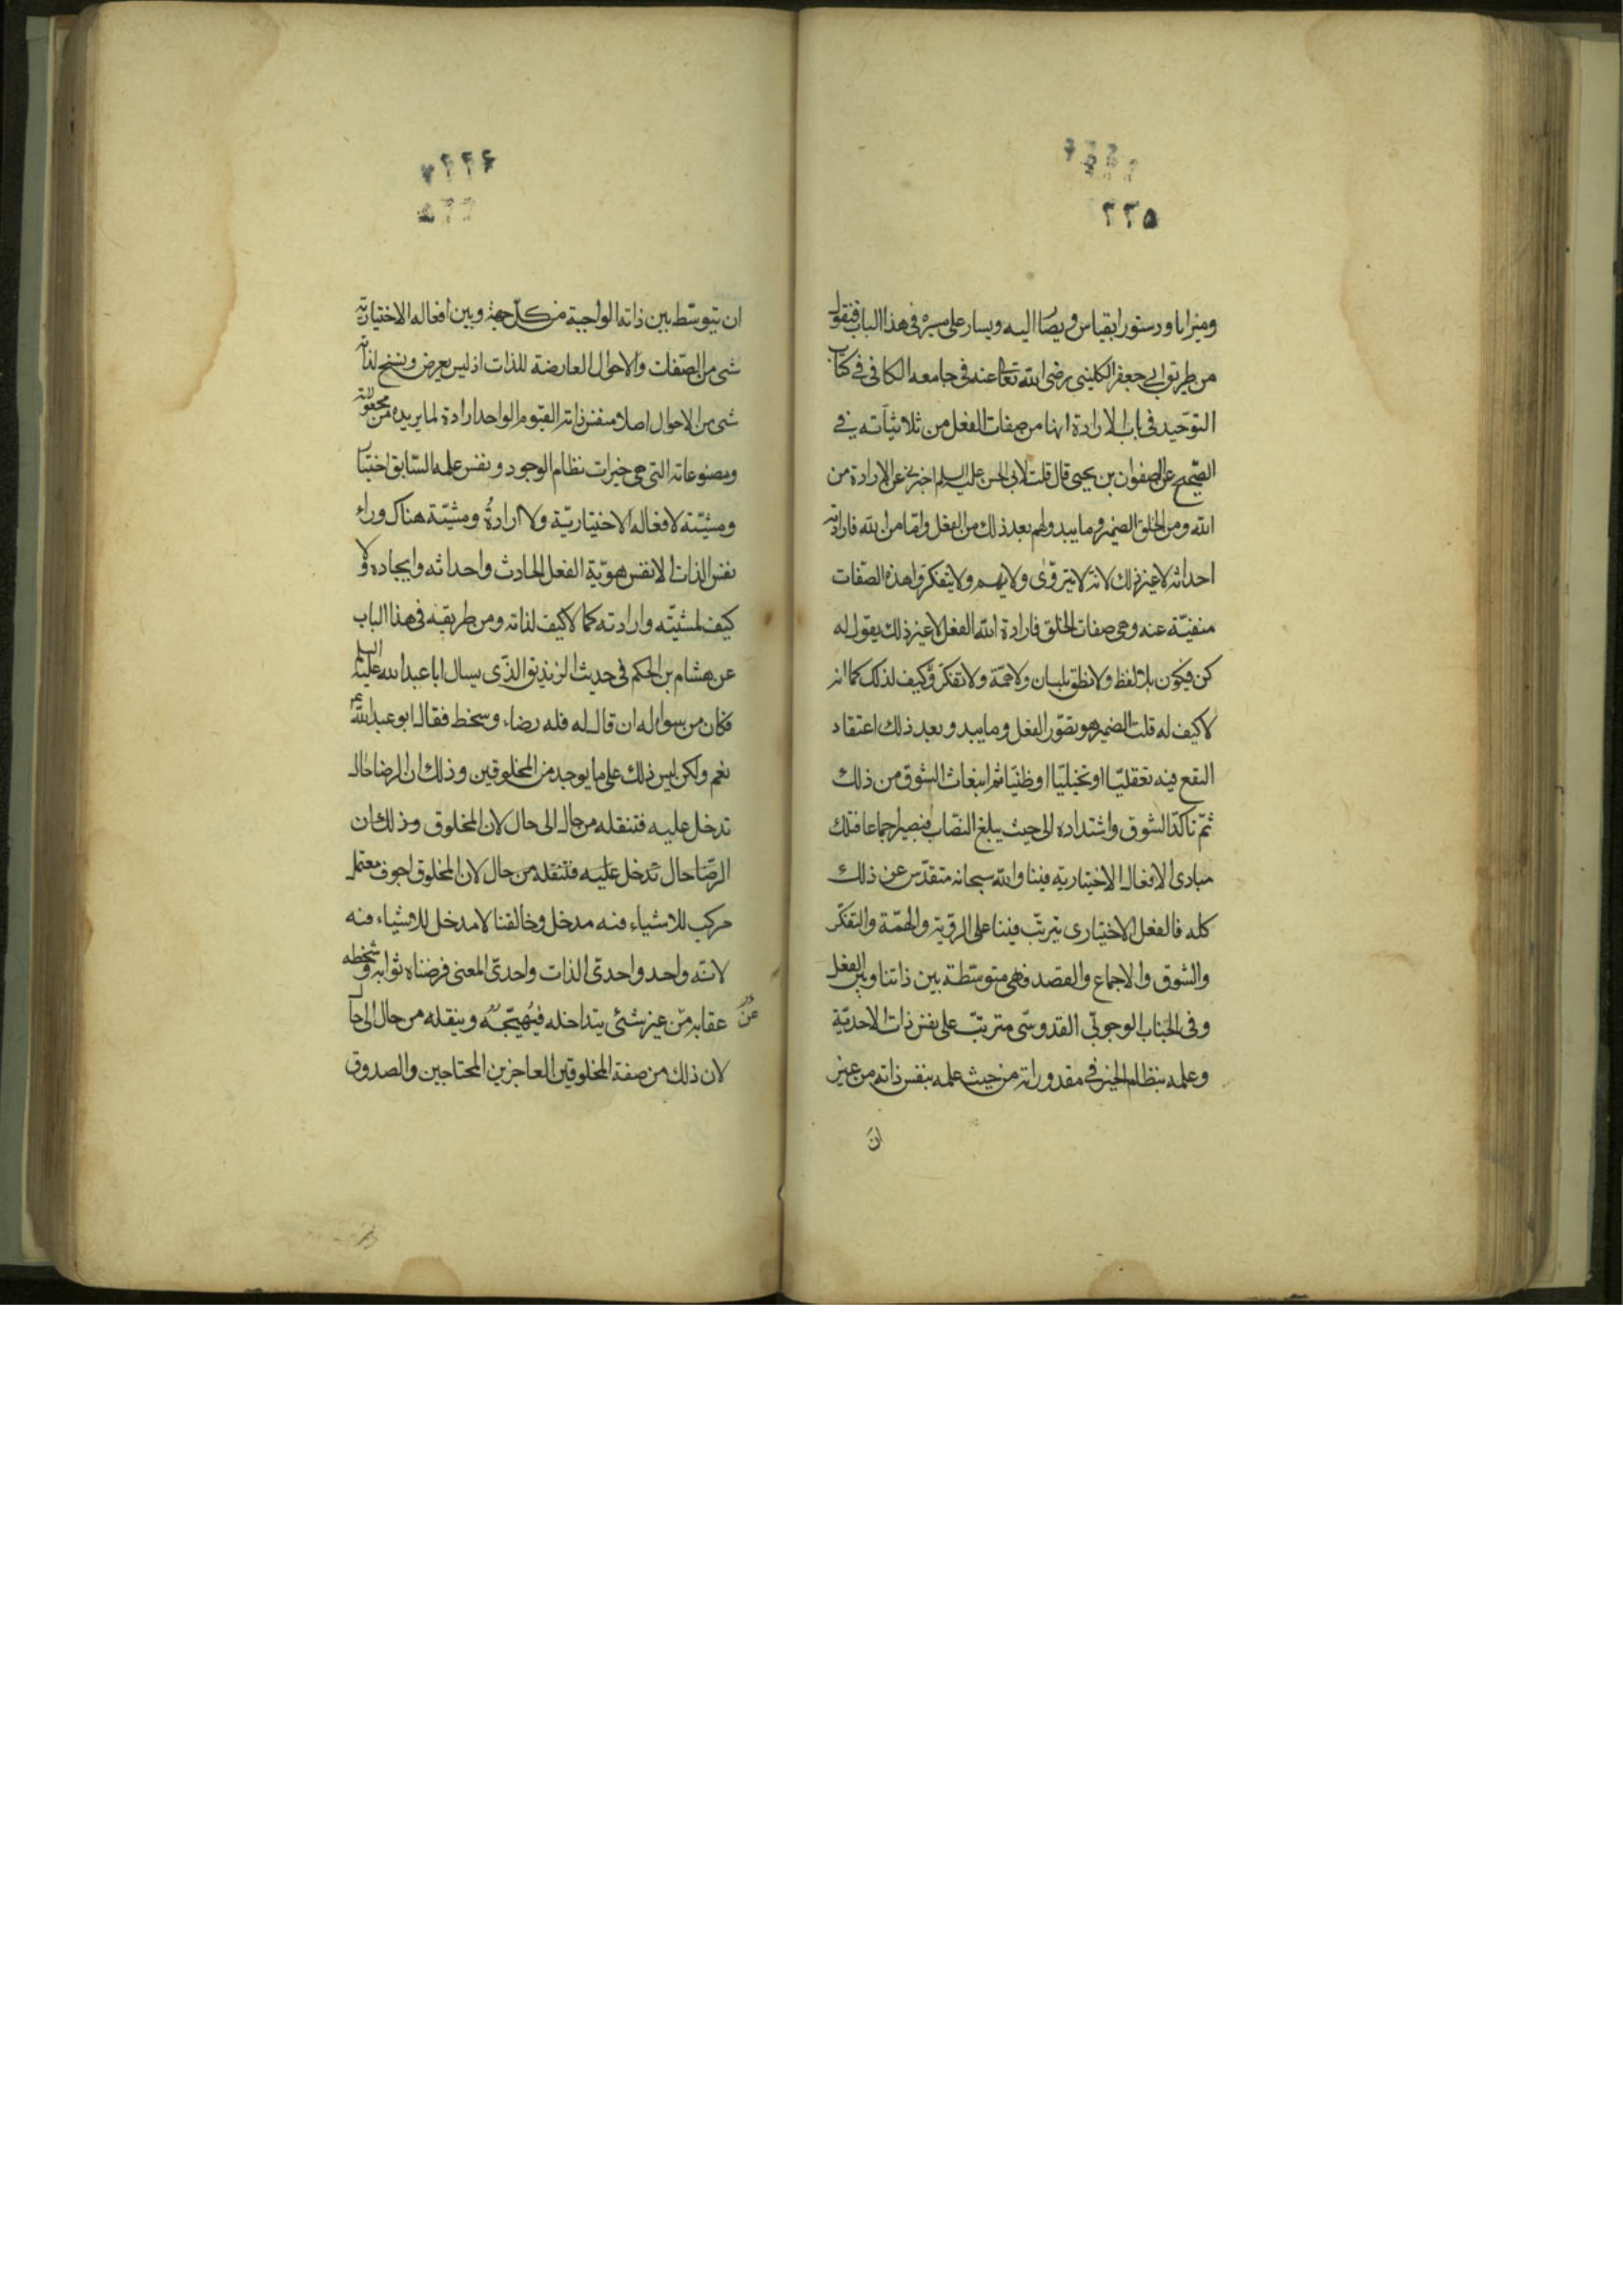 ٢٢٥
وميزانا ودستورا يقياس ويصار اليه ويسار على مسيره فى هذا الباب فنقول
من طريق ابى جعفر الكلينى رضى الله تعالى عنه فى جامعه الكافى فى كتاب
التوحيد فى باب الارادة انها من صفات الفعل من ثلاثياته فى
الصحيح عن صفوان بن يحيى قال قلت لابى الحسن عليه السلم اخبرنى عن الارادة من
الله ومن الخلق الضمير وما يبدو لهم بعد ذلك من الفعل وامّا من الله فارادته
احداثه لا غير ذلك لانه لا يتروّى ولا يهم ولا يتفكر وهذه الصّفات
منفيّة عنه وهى صفات الخلق فارادة الله الفعل لا غير ذلك يقول له
كن فيكون بلا لفظ ولا نطق بلسان ولا همّة ولا تفكّر ولا كيف لذلك كما انه
لا كيف له قلت الضمير هو تصوّر الفعل وما يبدو بعد ذلك اعتقاد
النفع فيه تعقليّا او تخيليّا او ظنيّا ثم انبغاث الشوق من ذلك
ثمّ تاكّد الشوق واشتداده الى حيث يبلغ النصّاب فيصير اجماعا فتلك
مبادى الافعال الاختيارية فينا والله سبحانه متقدّس عن ذلك
كله فالفعل الاختيارى يترتّب فينا على الرويّة والهمّة والتفكّر
والشوق والاجماع والقصد فهى متوسّطة بين ذاتنا وبين الفعل
وفى الجناب الوجوبّى القدوسّى مترتبّ على نفس ذات الاحديّة
وعلمه بنظام الخير فى مقدوراته من حيث علمه بنفس ذاته من غير
ان
ان يتوسّط بين ذاته الواجبة من كلّ جهة وبين افعاله الاختيارية
شى من الصّفات والاحوال العارضة للذات اذ ليس يعرض ويسنح لذاته
شى من الاحوال اصلا فنفس ذاته القيوم الواحد ارادة لما يريده من مجعولاته
ومصنوعاته التى هى خيرات نظام الوجود ونفس علمه السّابق اختيار
ومشيّة لافعاله الاختياريّة ولا ارادةُ ومشيّة هناك وراء
نفس الذات الا نفس هويّة الفعل الحادث واحداثه وايجاده ولا
كيف لمشيّته وارادته كما لا كيف لذاته ومن طريقه فى هذا الباب
عن هشام بن الحكم فى حديث الزنديق الذّى يسال ابا عبد الله عليه السلم
فكان من سواله ان قال له فله رضاء وسخط فقال ابو عبد الله ع
نعم ولكن ليس ذلك على ما يوجد من المخلوقين وذلك ان الرضا حال
تدخل عليه فتنقله من حال الى حال لان المخلوق وذلك ان
الرّضا حال تدخل عليه فتنقله من حال لان المخلوق اجوف معتمل
مركب للاشياء فيه مدخل وخالقنا لا مدخل للاشياء فيه
لانّه واحد واحدىّ الذات واحدىّ المعنى فرضاه ثوابه وسخطه
عقابه من غير شئى يتداخله فيُهيّجُه وينقله من حال الى حال
لان ذلك من صفة المخلوقين العاجزين المحتاجين والصدوق